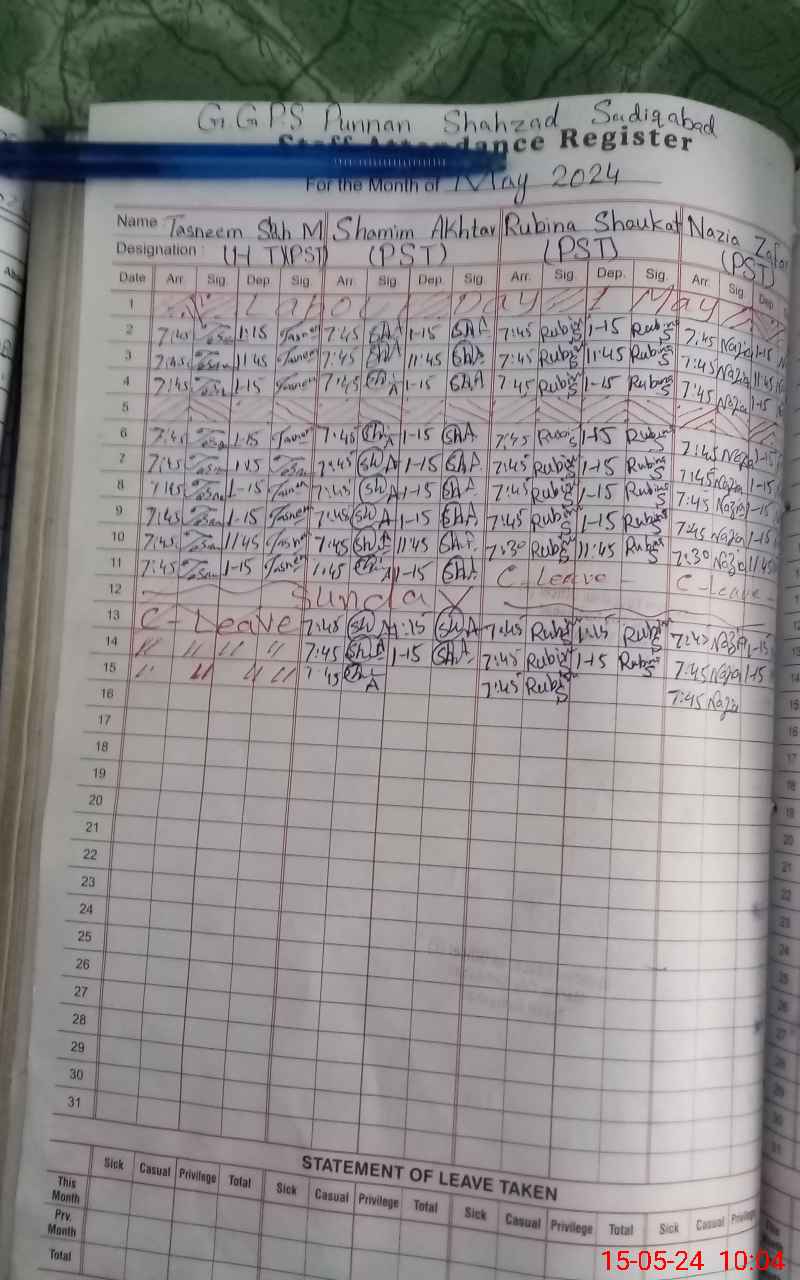 G.G.P.S Punnan Shahzad Sadiqabad
Staff Attendance Register
For the Month of May 2024
Name Tasneem Shamim Akhtar Rubina Shaukat Nazia Zafar
Designation : (H T)(PST) (PST) (PST) (PST)
Date Arr. Sig. Dep. Sig. Arr. Sig. Dep. Sig. Arr. Sig. Dep. Sig. Arr. Sig. Dep.
1 Labour Day 1 May
2 7:45 1:15 7:45 ShA 1-15 ShA 7:45 Rubina S 1-15 Rubina S 7:45 Nazia 1-15
3 7:45 11:45 7:45 ShA 11:45 ShA 7:45 Rubina S 11:45 Rubina S 7:45 Nazia 11:45
4 7:45 1-15 7:45 Sh.A 1-15 ShA 7:45 Rubina S 1-15 Rubina S 7:45 Nazia 1-15
5
6 7:45 1-15 7:45 Sh.A 1-15 ShA 7:45 Rubina S 1-15 Rubina S 7:45 Nazia 1-15
7 7:45 1:15 7:45 ShA 1-15 ShA 7:45 Rubina S 1-15 Rubina S 7:45 Nazia 1-15
8 7:45 1-15 7:45 ShA 1-15 ShA 7:45 Rubina S 1-15 Rubina S 7:45 Nazia 1-15
9 7:45 1-15 7:45 ShA 1-15 ShA 7:45 Rubina S 1-15 Rubina S 7:45 Nazia 1-15
10 7:45 11:45 7:45 ShA 11:45 ShA 7:30 Rubina S 11:45 Rubina S 7:30 Nazia 11:45
11 7:45 1-15 7:45 Sh.A 1-15 ShA C-Leave C-Leave
12 Sunday
13 C-Leave 7:45 ShA 1:15 ShA 7:45 Rubina S 1:15 Rubina S 7:45 Nazia 1-15
14 " " " " 7:45 ShA 1-15 ShA 7:45 Rubina 1-15 Rubina S 7:45 Nazia 1-15
15 " " " " 7:45 Sh.A 7:45 Rubina S 7:45 Nazia
16
17
18
19
20
21
22
23
24
25
26
27
28
29
30
31
STATEMENT OF LEAVE TAKEN
Sick Casual Privilege Total Sick Casual Privilege Total Sick Casual Privilege Total Sick Casual Privilege
This Month
Prv. Month
Total
15-05-24 10:04